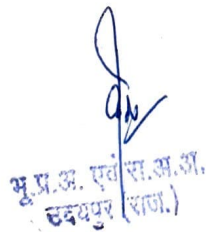 भू.प्र.अ. एवं रा.अ.अ.
उदयपुर (राज.)